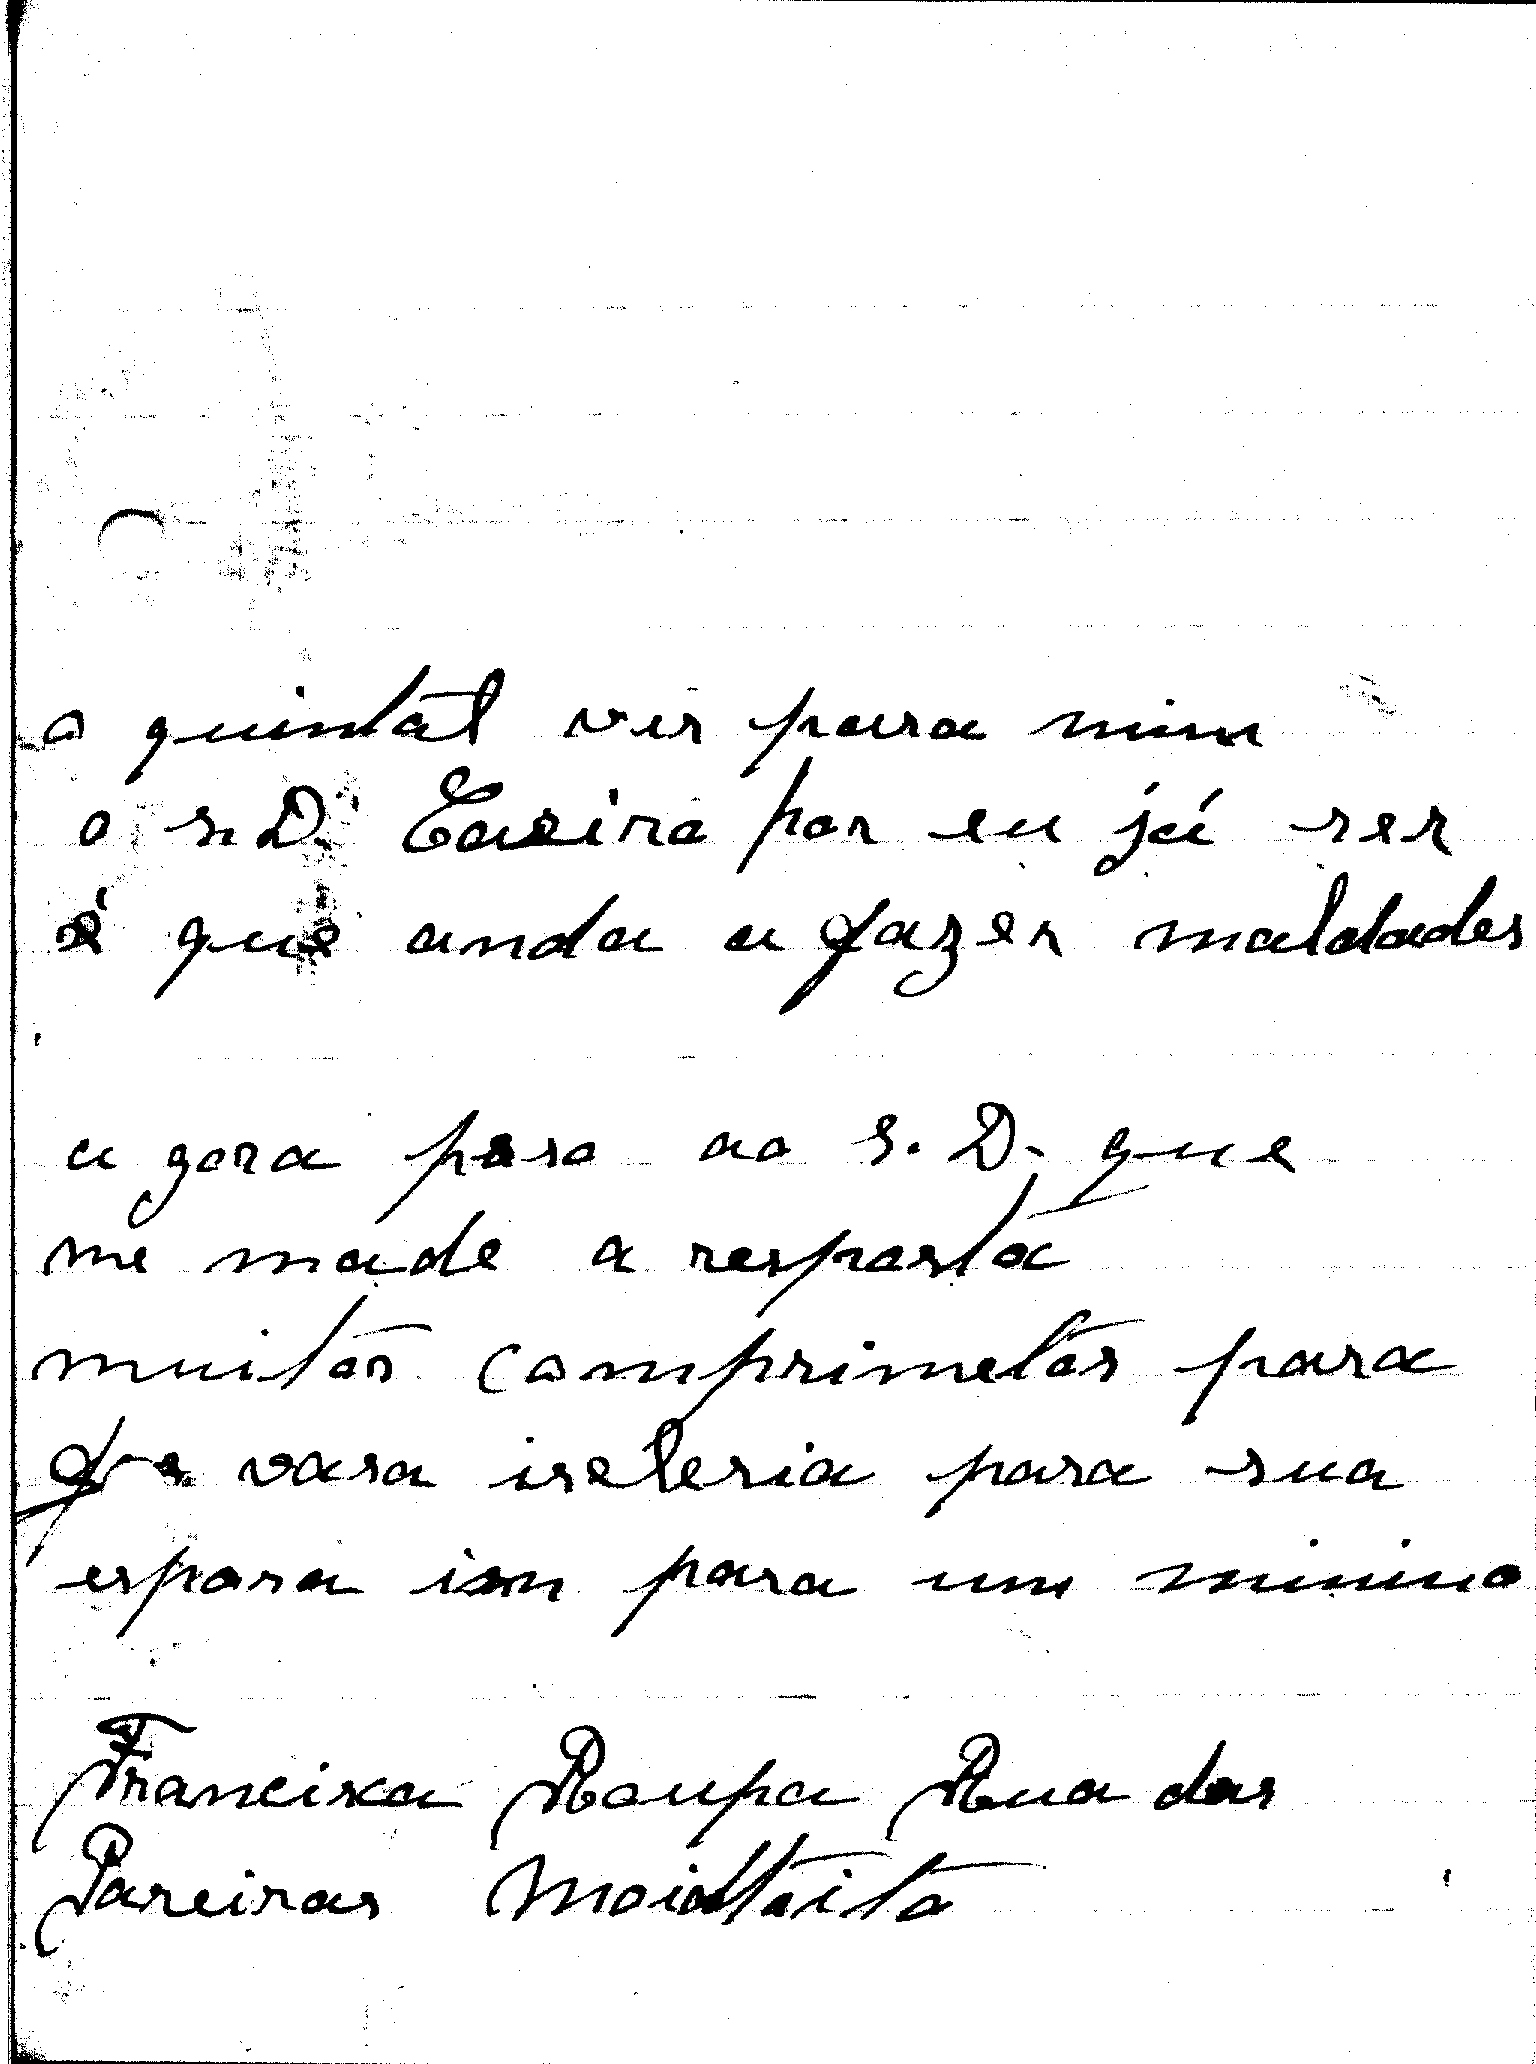 o quintal vir para mim
o s. D. Cazira por eu já ser
é que anda a fazer maldades
a gora peso ao S. D. que
me made a resposta
muitos comprimetos para
vasa iseleria para sua
espora im para um minino
Francixa Roupa Rua das
Pareiras